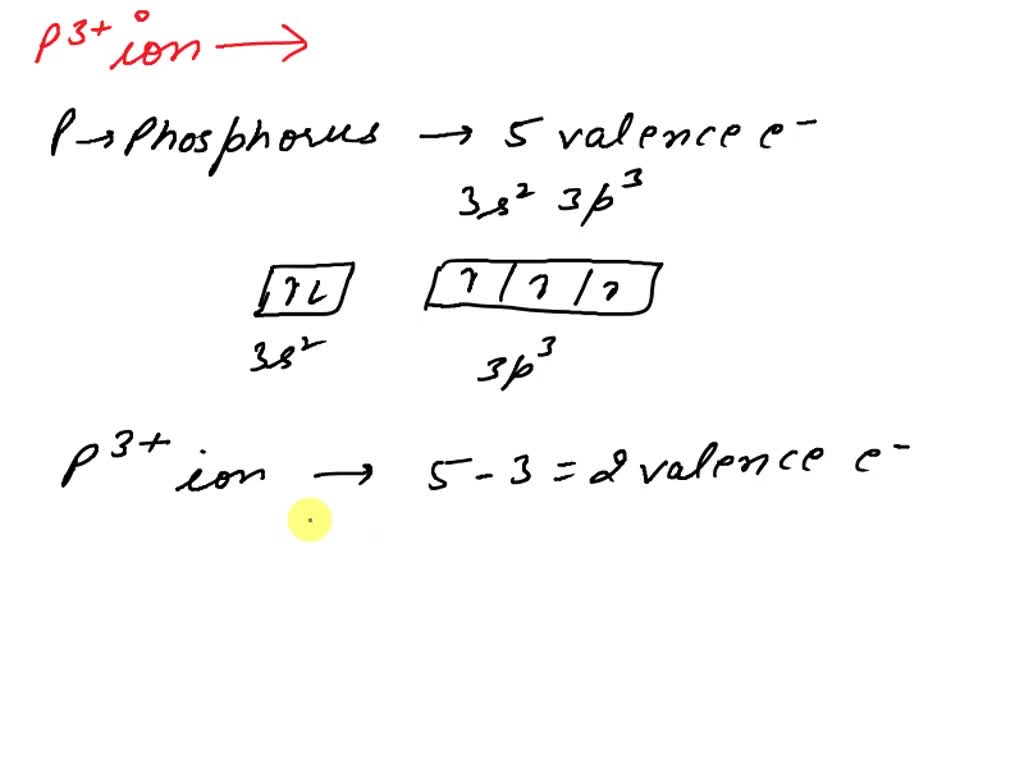 P³⁺ ion →
P → Phosphorus → 5 valence e⁻
3s² 3p³
↿⇂ ↿ / ↿ / ↿
3s² 3p³
P³⁺ ion → 5 - 3 = 2 valence e⁻